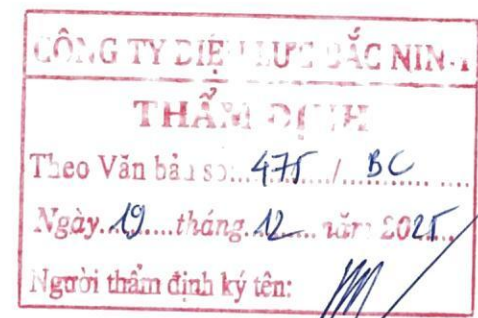 CÔNG TY ĐIỆN LỰC BẮC NINH
THẨM ĐỊNH
Theo Văn bản số:...475.../...BC.........
Ngày..19....tháng..12.....năm 2025..
Người thẩm định ký tên: